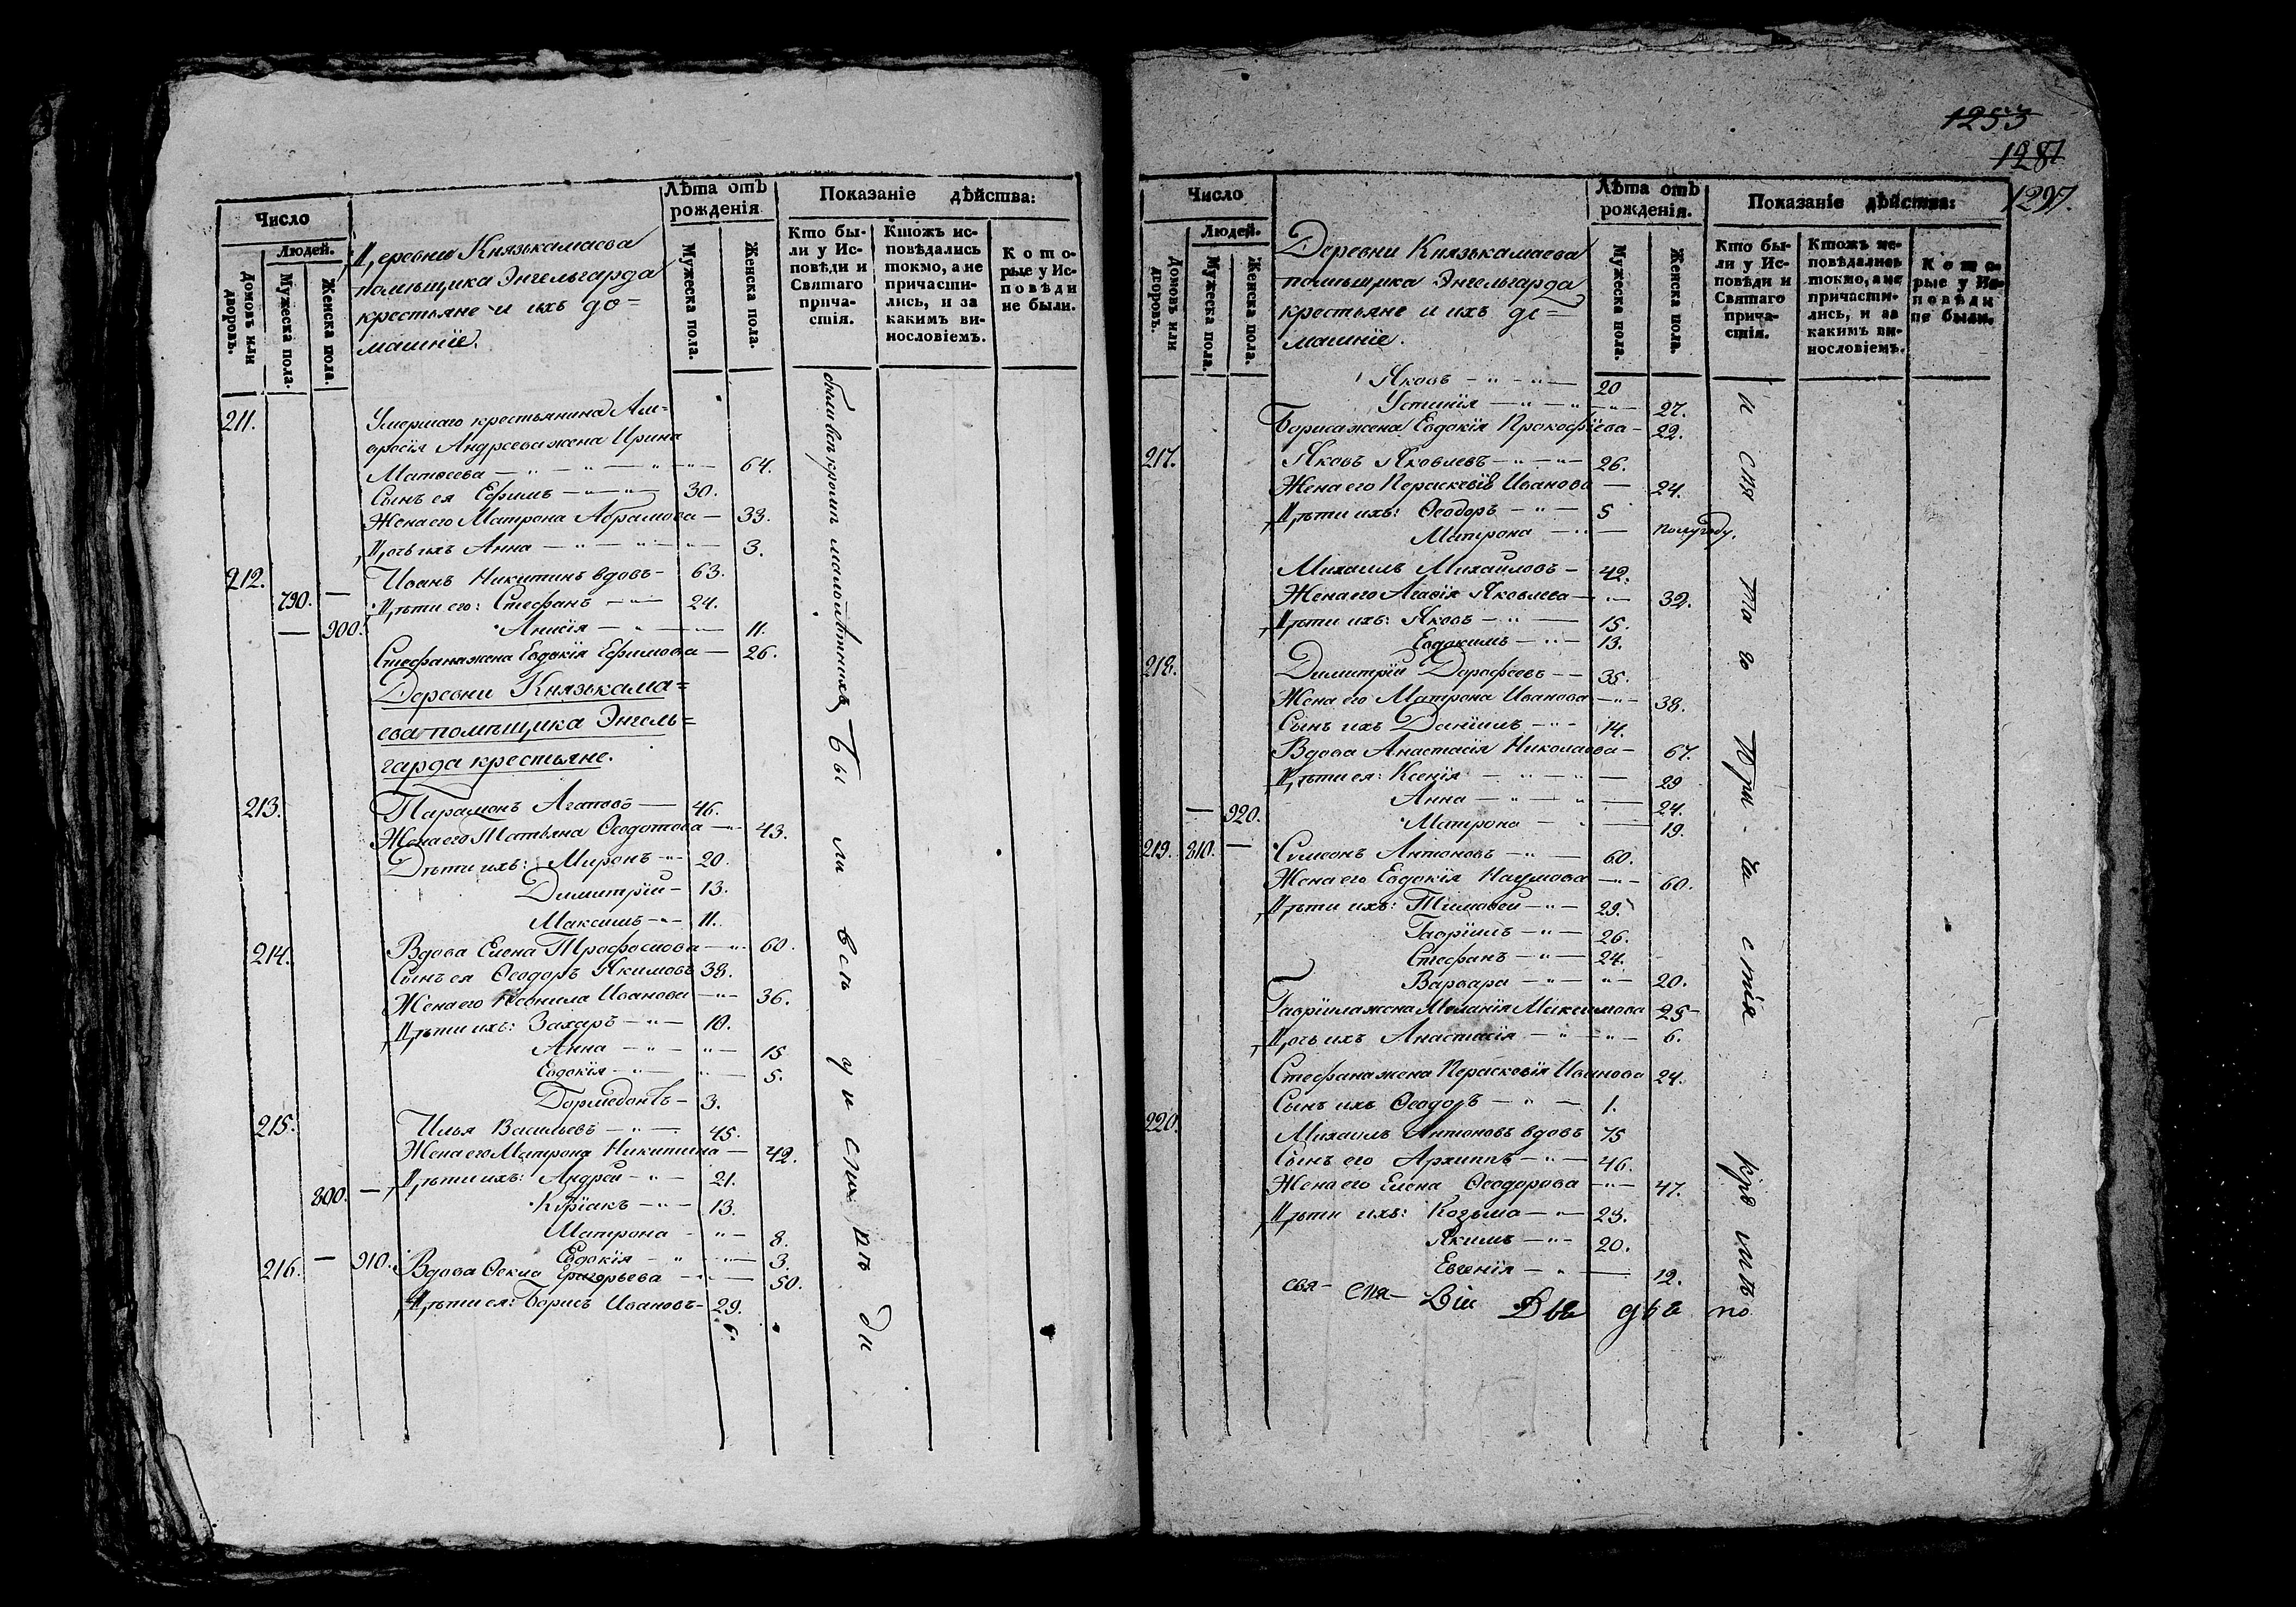 Число
Людей.
Домовъ или дворовъ.
Мужеска пола.
Женска пола.
Деревни Князькамаева
помѣщика Энгельгарда
крестьяне и ихъ до=
машніе.
Лѣта отъ рожденія
Мужеска пола.
Женска пола.
Показаніе дѣйства:
Кто бы-
ли у Ис-
повѣди и
Святаго
прича-
стія.
Ктожъ ис-
повѣдались
токмо, а не
причасти-
лись, и за
какимъ ви-
нословіемъ.
Кото-
рые у Ис-
повѣди
не были.
211. Умершаго крестьянина Ам=
вросія Андреева жена Ирина
Матвеева 64.
Сынъ ея Ефимъ 30.
Жена его Матрона Абрамова 33.
Дочь ихъ Анна 3.
212. Иванъ Никитинъ вдовъ 63.
790. — Дѣти его: Стефанъ 24.
— 900. Анисія 11.
Стефана жена Евдокія Ефимова 26.
Деревни Князькама=
ева помѣщика Энгель=
гарда крестьяне.
213. Парамонъ Агаповъ 46.
Жена его Татьяна Ѳеодотова 43.
Дѣти ихъ: Миронъ 20.
Димитрій 13.
Максимъ 11.
214. Вдова Елена Трофимова 60.
Сынъ ея Ѳеодоръ Якимовъ 38.
Жена его Ивановa 36.
Дѣти ихъ: Захаръ 10.
Анна 15
Евдокія 5.
Дормедонтъ 3.
215. Илья Васильевъ 45.
Жена его Матрона Никитина 42.
Дѣти ихъ: Андрей 21.
800. — Киріакъ 13.
Матрона 8.
— 910. Евдокія 3.
216. Вдова Ѳекла Григорьева 50.
Дѣти ея: Борисъ Ивановъ 29.
были всѣ кромѣ малолѣтнихъ
Бы ли всѣ у и спо вѣ ди
1253
1281
1297.
Число
Людей.
Домовъ или дворовъ.
Мужеска пола.
Женска пола.
Деревни Князькамаева
помѣщика Энгельгарда
крестьяне и ихъ до=
машніе.
Лѣта отъ рожденія.
Мужеска пола.
Женска пола.
Показаніе дѣйства:
Кто бы-
ли у Ис-
повѣди и
Святаго
прича-
стія.
Ктожъ ис-
повѣдались
токмо, а не
причасти-
лись, и за
какимъ ви-
нословіемъ.
Кото-
рые у Ис-
повѣди
не были.
Яковъ 20
Устинія 27.
Бориса жена Евдокія Прокофіева 22.
217. Яковъ Яковлевъ 26.
Жена его Параскевія Иванова 24.
Дѣти ихъ: Ѳеодоръ 5
Матрона полугоду.
Михаилъ Михаиловъ 42.
Жена его Агафія Яковлева 32.
Дѣти ихъ: Яковъ 15.
Евдокимъ 13.
218. Димитрій Дорофеевъ 35.
Жена его Матрона Иванова 38.
Сынъ ихъ Даніилъ 14.
Вдова Анастасія Николаева 67.
Дѣти ея: Ксенія 29
Анна 24.
— 920. Матрона 19.
219. 810. — Симеонъ Антоновъ 60.
Жена его Евдокія Наумова 60.
Дѣти ихъ: Тимофей 29.
Гавріилъ 26.
Стефанъ 24.
Варвара 20.
Гавріила жена Меланія Максимова 25
Дочь ихъ Анастасія 6.
Стефана жена Пераскевія Иванова 24.
Сынъ ихъ Ѳеодоръ 1.
220. Михаилъ Антоновъ вдовъ 75
Сынъ его Архиппъ 46.
Жена его Елена Ѳеодорова 47.
Дѣти ихъ: Козьма 23.
Якимъ 20.
Евгенія 12.
и свя та го При ча стія
кро мѣ